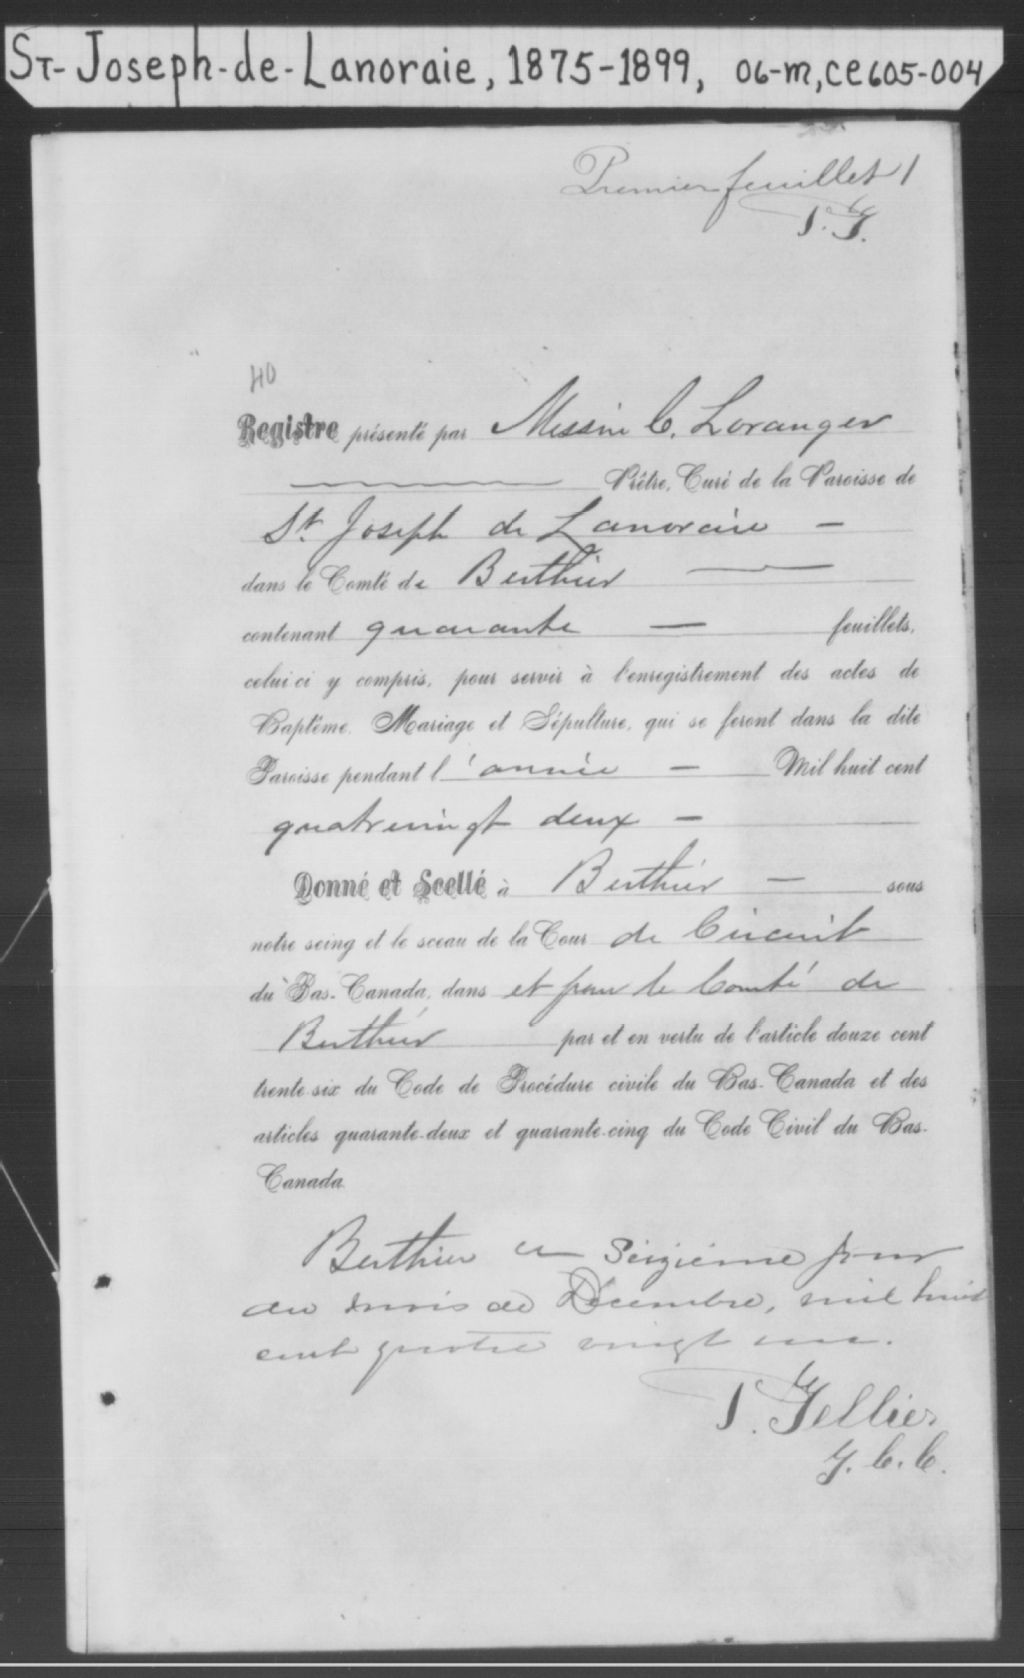 St-Joseph-de-Lanoraie, 1875-1899, 06-M, CE605-004
Premier feuillet 1
40
Registre présenté par Messire C. Loranger
Prêtre, Curé de la Paroisse de
St. Joseph de Lanoraie —
dans le Comté de Berthier —
contenant quarante — feuillets,
celui-ci y compris, pour servir à l'enregistrement des actes de
Baptême, Mariage et Sépulture, qui se feront dans la dite
Paroisse pendant l'année — Mil huit cent
quatrevingt deux —
Donné et Scellé à Berthier — sous
notre seing et le sceau de la Cour de Circuit
du Bas-Canada, dans et pour le Comté de
Berthier par et en vertu de l'article douze cent
trente-six du Code de Procédure civile du Bas-Canada et des
articles quarante-deux et quarante-cinq du Code Civil du Bas-
Canada.
Berthier ce Seizième jour
du mois de Décembre, mil huit
cent quatre vingt un.